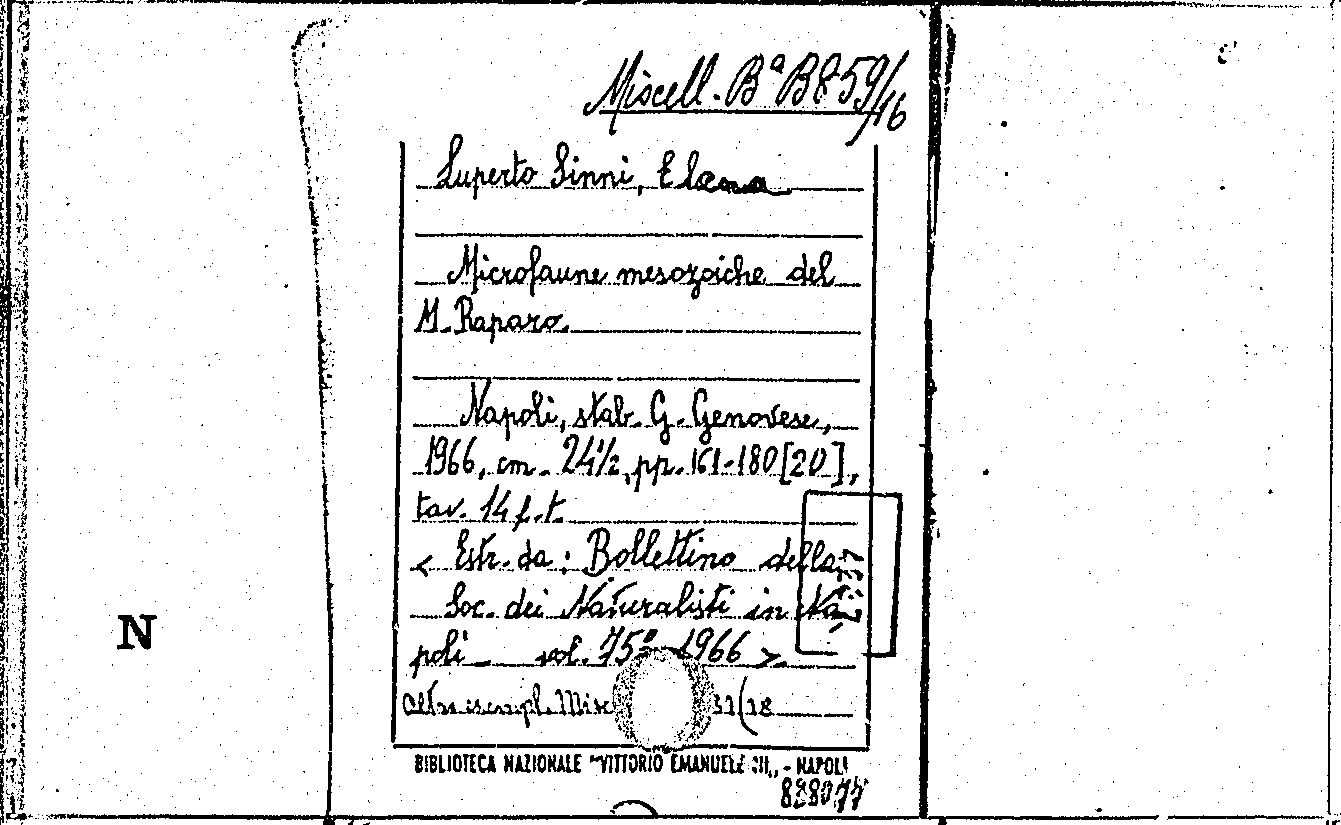 Miscell. Bª B859/16
Luperto Sinni, Elena
Microfaune mesozoiche del
M. Raparo.
Napoli, stab. G. Genovese,
1966, cm. 24½, pp. 161-180 [20],
tav. 14 f.t.
< Estr. da: Bollettino della
Soc. dei Naturalisti in Na
poli vol. 75º 1966 >.
altro esempl. Misc 31/18
N
BIBLIOTECA NAZIONALE "VITTORIO EMANUELE III" - NAPOLI